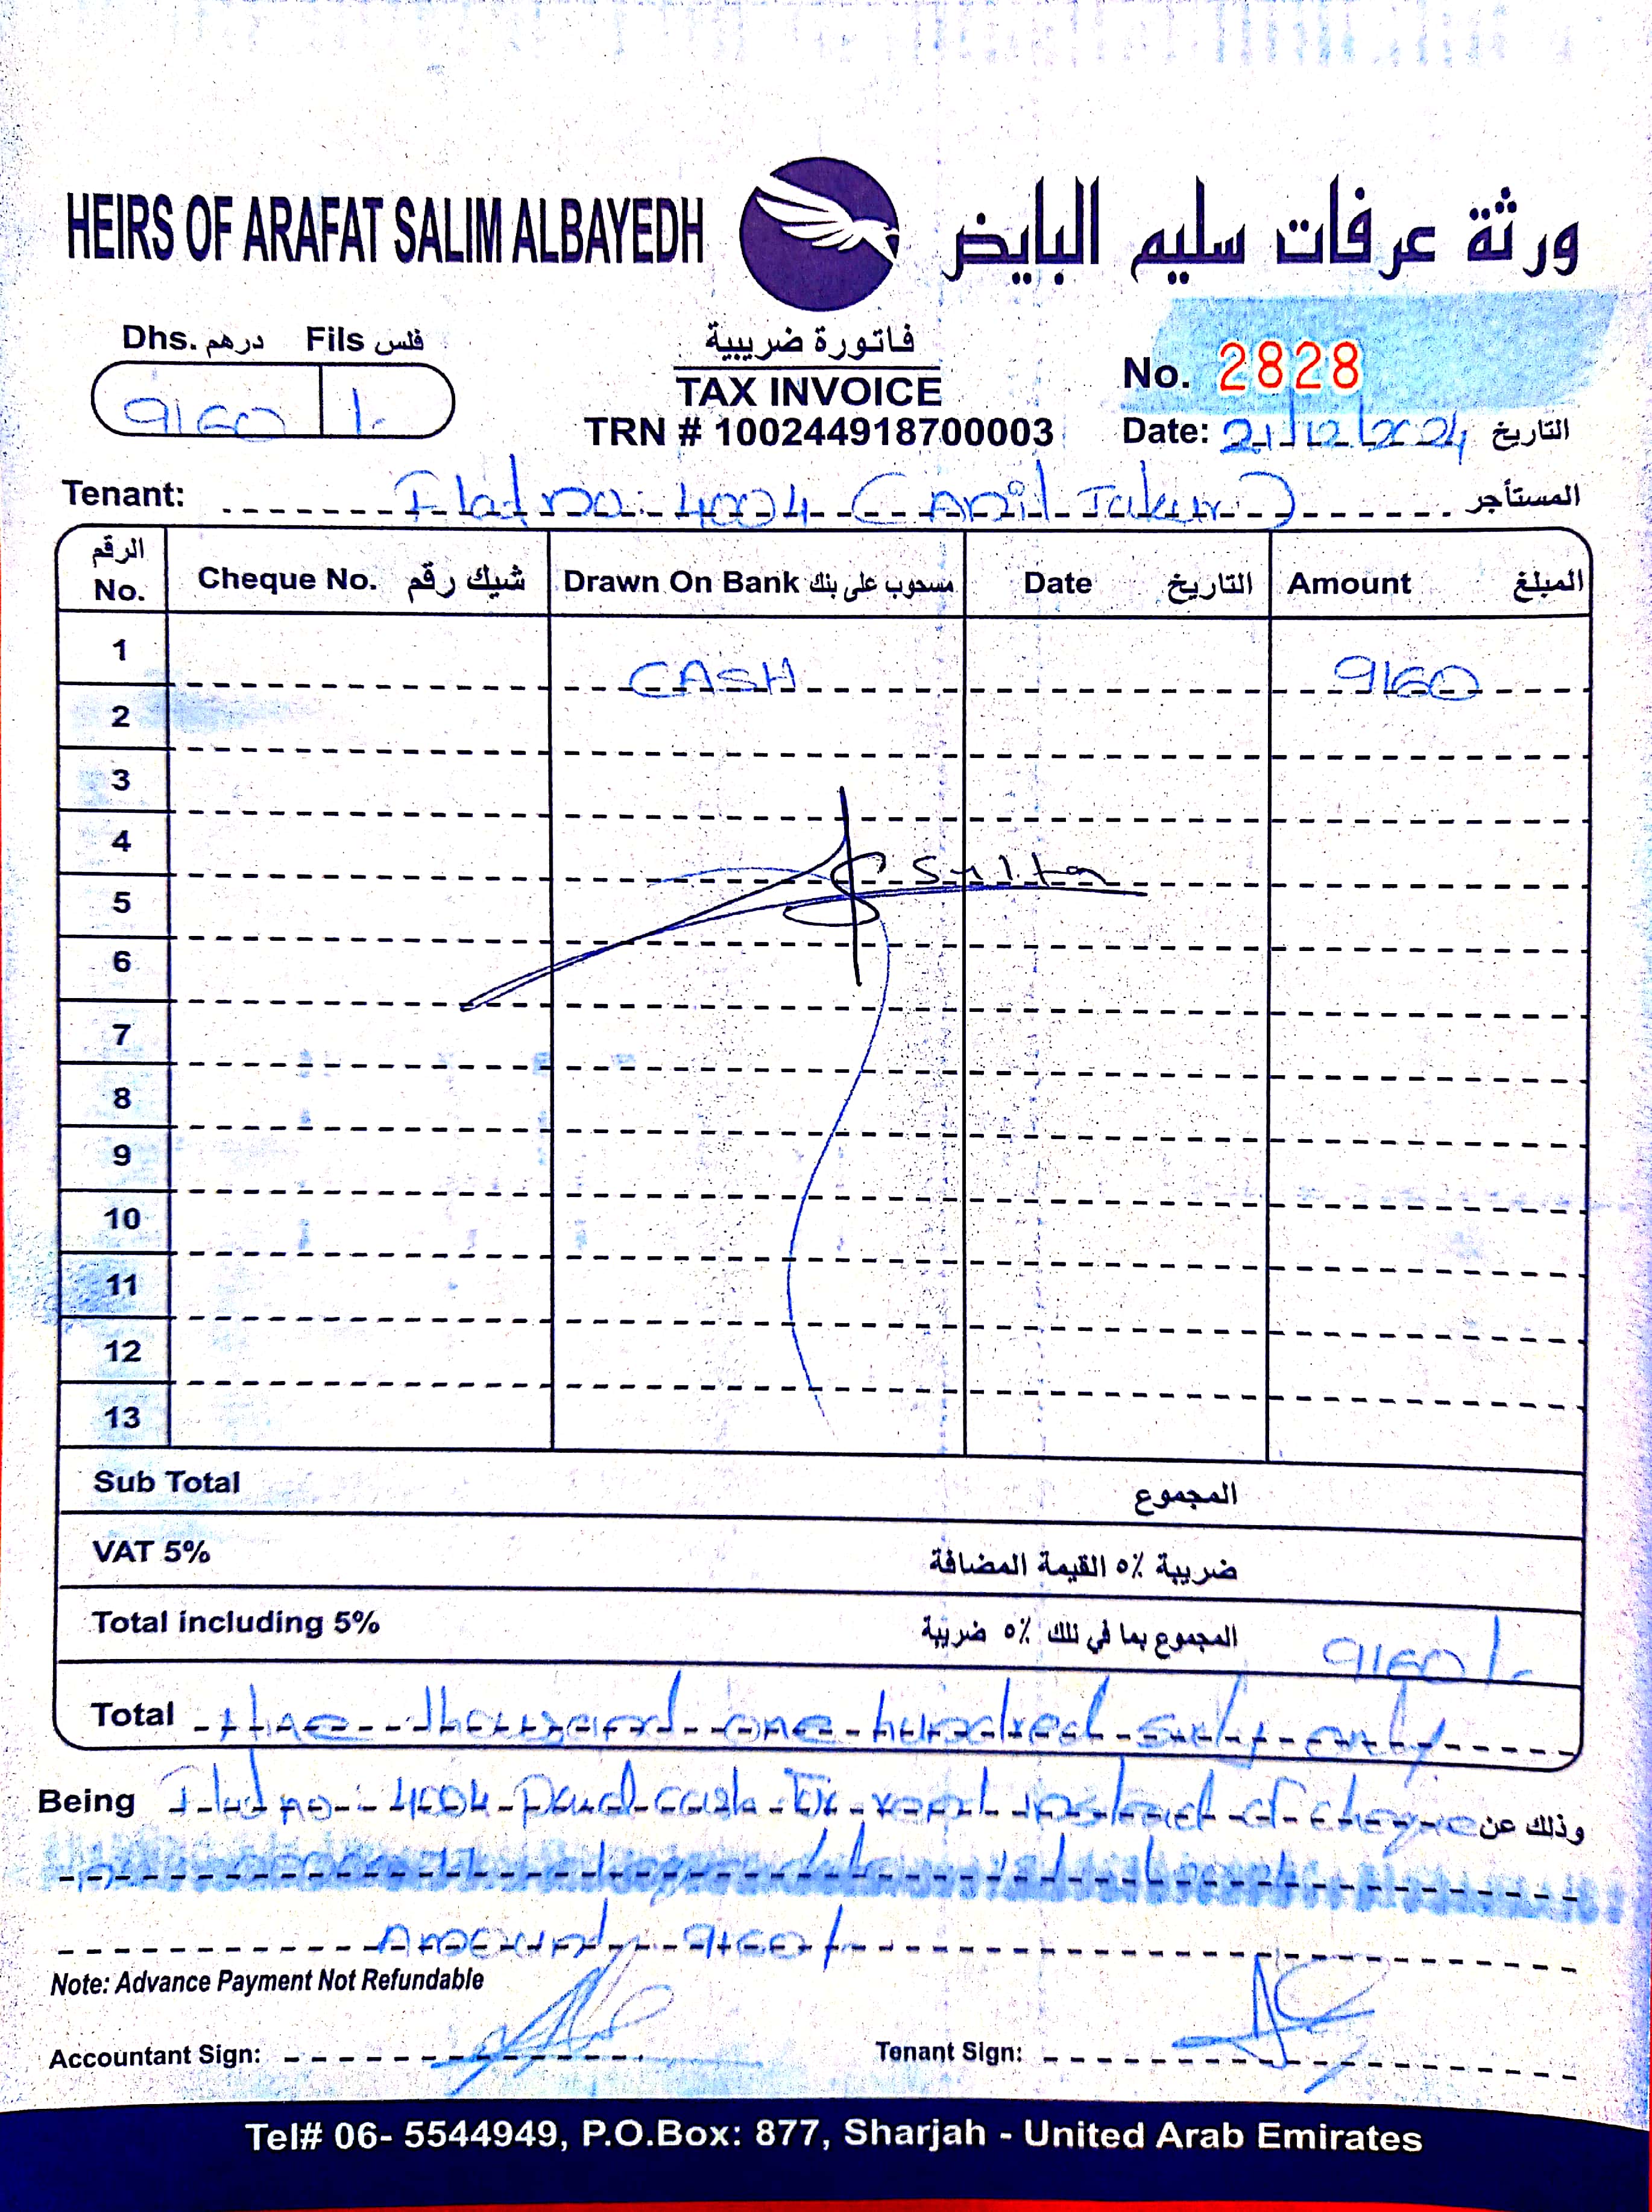 HEIRS OF ARAFAT SALIM ALBAYEDH ورثة عرفات سليم البايض
Dhs. درهم Fils فلس
9160 /-
فاتورة ضريبية
TAX INVOICE
TRN # 100244918700003
No. 2828
Date: 21/12/2024 التاريخ
Tenant: Flat no: 4004 (Anil المستأجر
الرقم No. Cheque No. شيك رقم Drawn On Bank مسحوب على بنك Date التاريخ Amount المبلغ
1 CASH 9160
2
3
4
5
6
7
8
9
10
11
12
13
Sub Total المجموع
VAT 5% ضريبة ٥٪ القيمة المضافة
Total including 5% المجموع بما في ذلك ٥٪ ضريبة 9160/-
Total thousand one hundred sixty only
Being Flat no: 4004 Paid cash for rent instead of cheque وذلك عن
Amount 9160/-
Note: Advance Payment Not Refundable
Accountant Sign: Tenant Sign:
Tel# 06- 5544949, P.O.Box: 877, Sharjah - United Arab Emirates